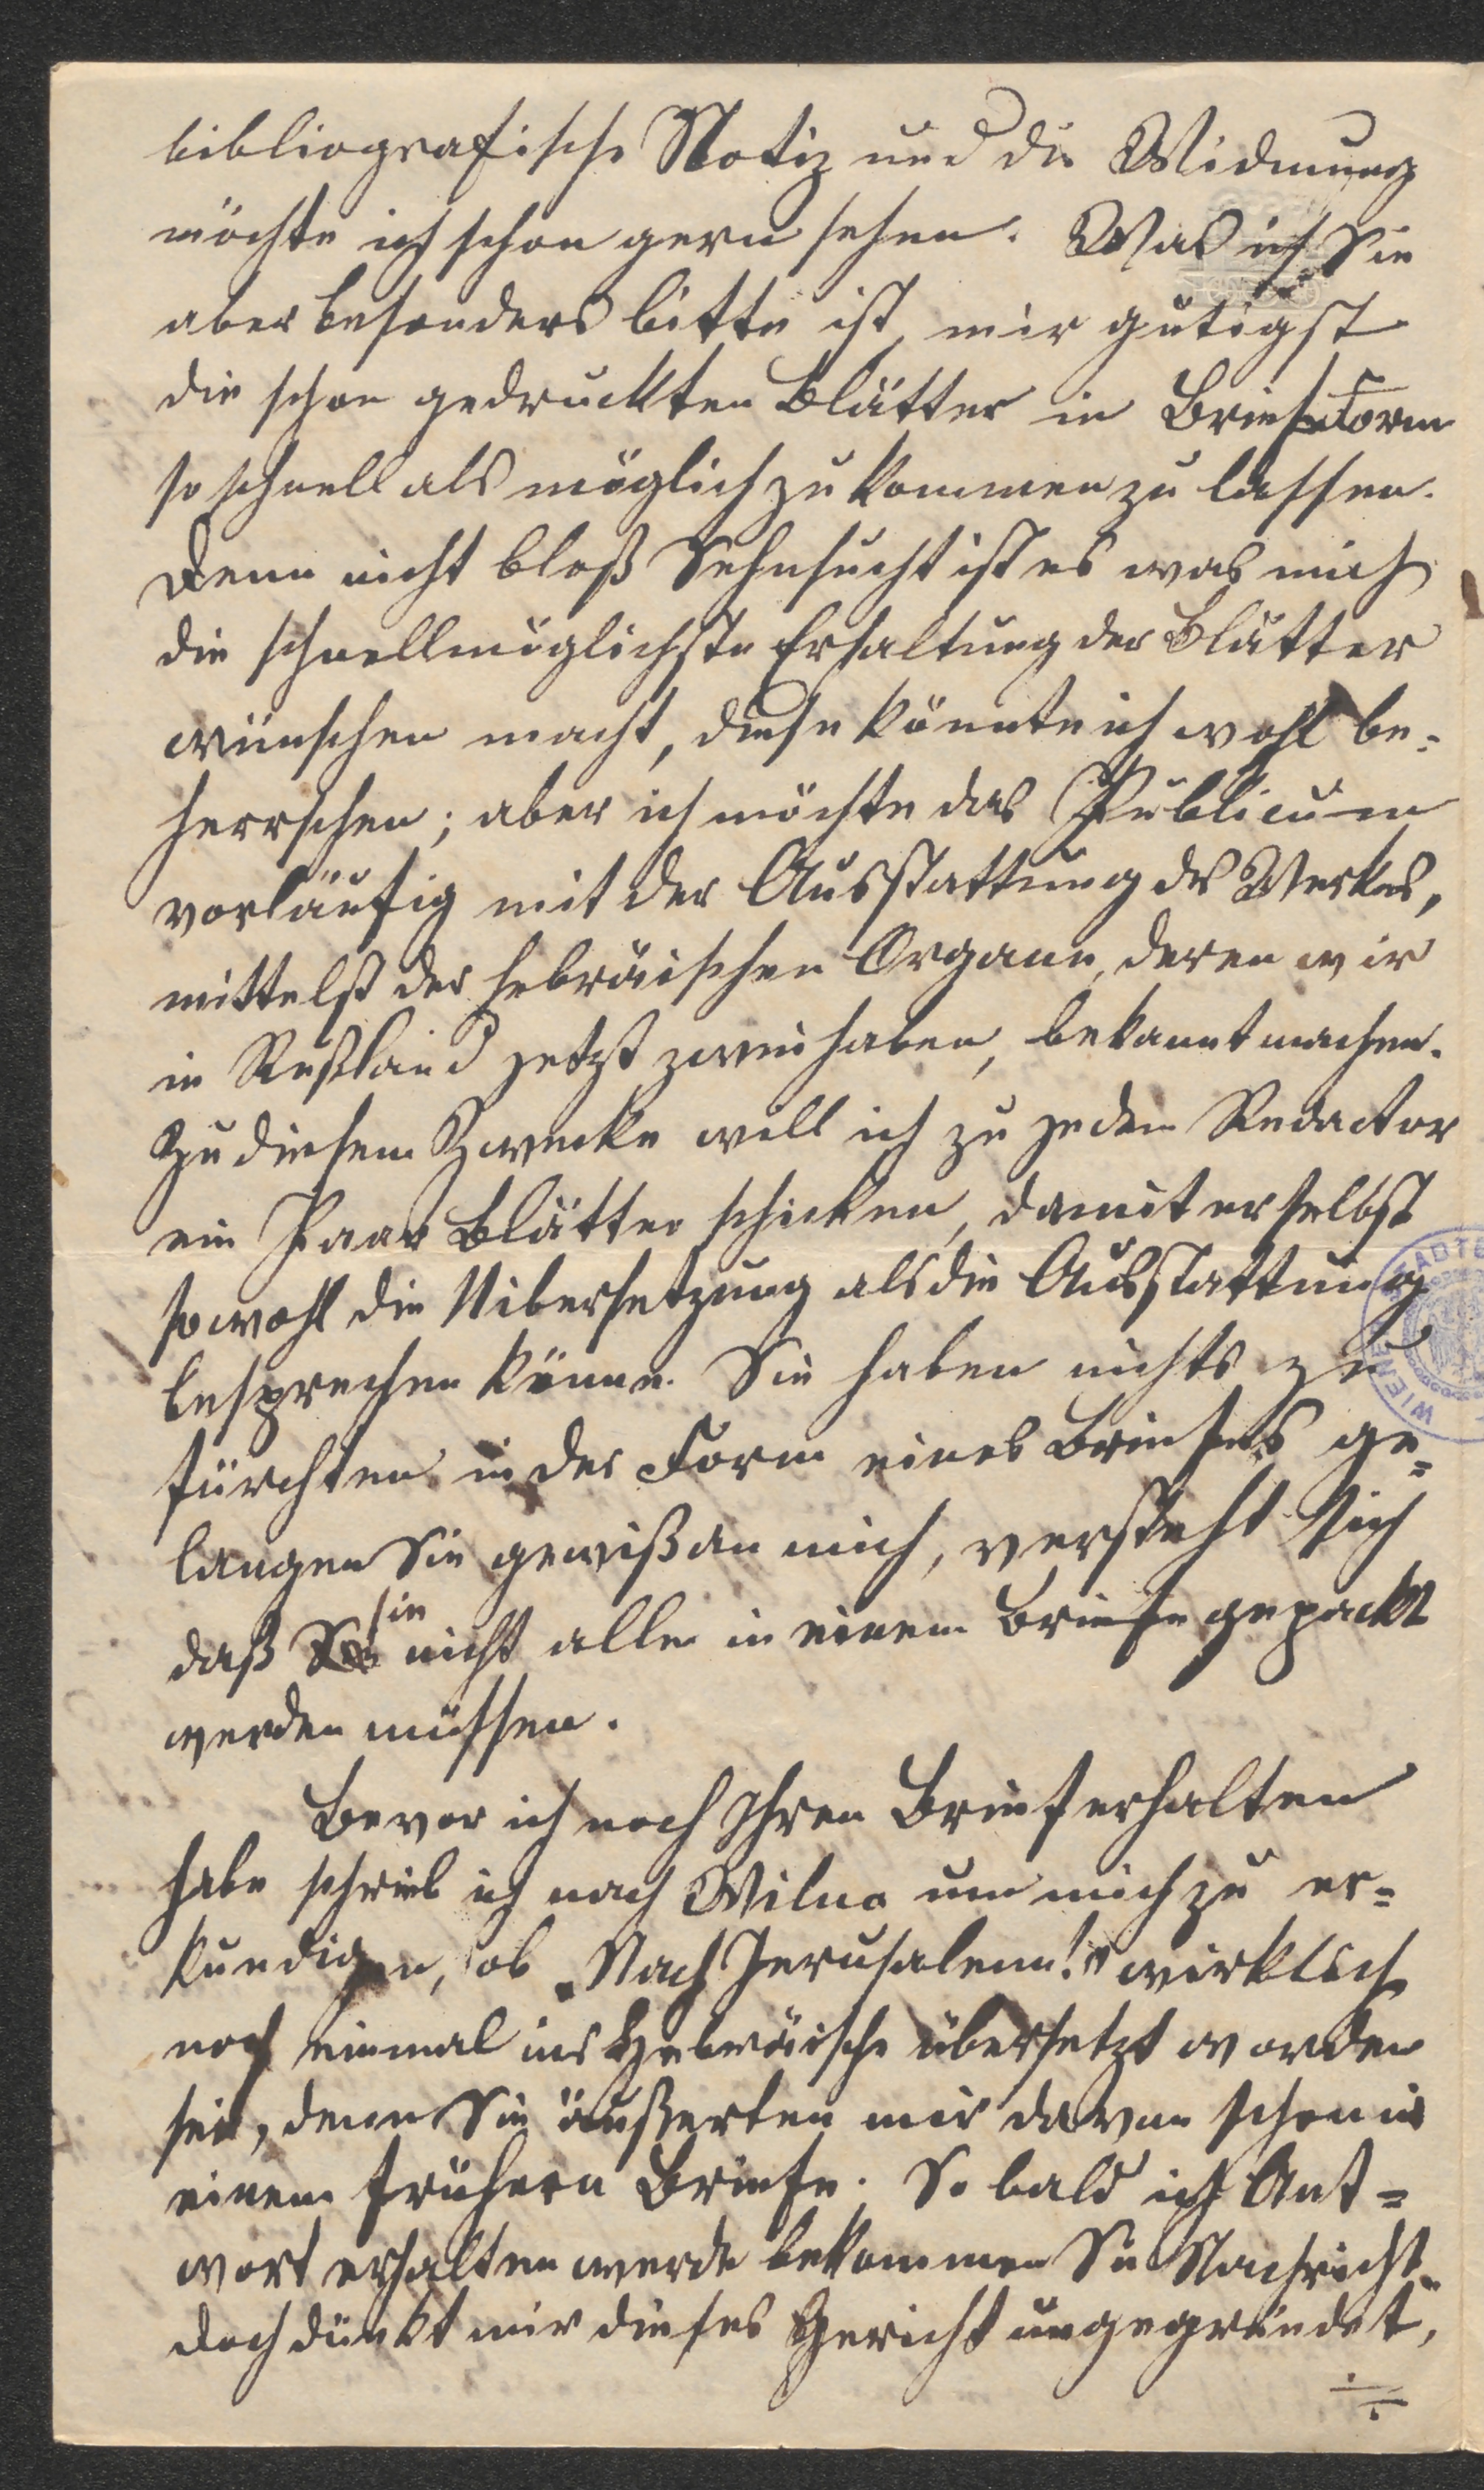 bibliografische Notiz und die Widmung
möchte ich schon gern sehen. Was ich Sie
aber besonders bitte ist, mir gütigst
die schon gedruckten Blätter in Briefform
so schnell als möglich zu kommen zu lassen.
Denn nicht bloß Sehnsucht ist es was mich
die schnellmöglichste Erhaltung der Blätter
wünschen macht, diese könnte ich wohl be=
herrschen; aber ich möchte das Publicum
vorläufig mit der Ausstattung des Werkes,
mittelst der hebräischen Organe, deren wir
in Rußland jetzt zwei haben, bekannt machen.
Zu diesem Zwecke will ich zu jedem Redactor
ein Paar Blätter schicken, damit er selbst
sowohl die Uibersetzung als die Ausstattung
besprechen könne. Sie haben nichts zu
fürchten in der Form eines Briefes ge=
langen Sie gewiß an mich, versteht sich
daß sie nicht alle in einem Briefe gepackt
werden müssen.
Bevor ich noch Ihren Brief erhalten
habe schrieb ich nach Wilna um mich zu er=
kundigen, ob „Nach Jerusalem!" wirklich
noch einmal ins Hebräische übersetzt worden
sei, denn Sie äußerten mir davon schon in
einem frühern Briefe. So bald ich Ant=
wort erhalten werde bekommen Sie Nachricht.
doch dünkt mir dieses Gericht ungegründet,
WIENER STADTB